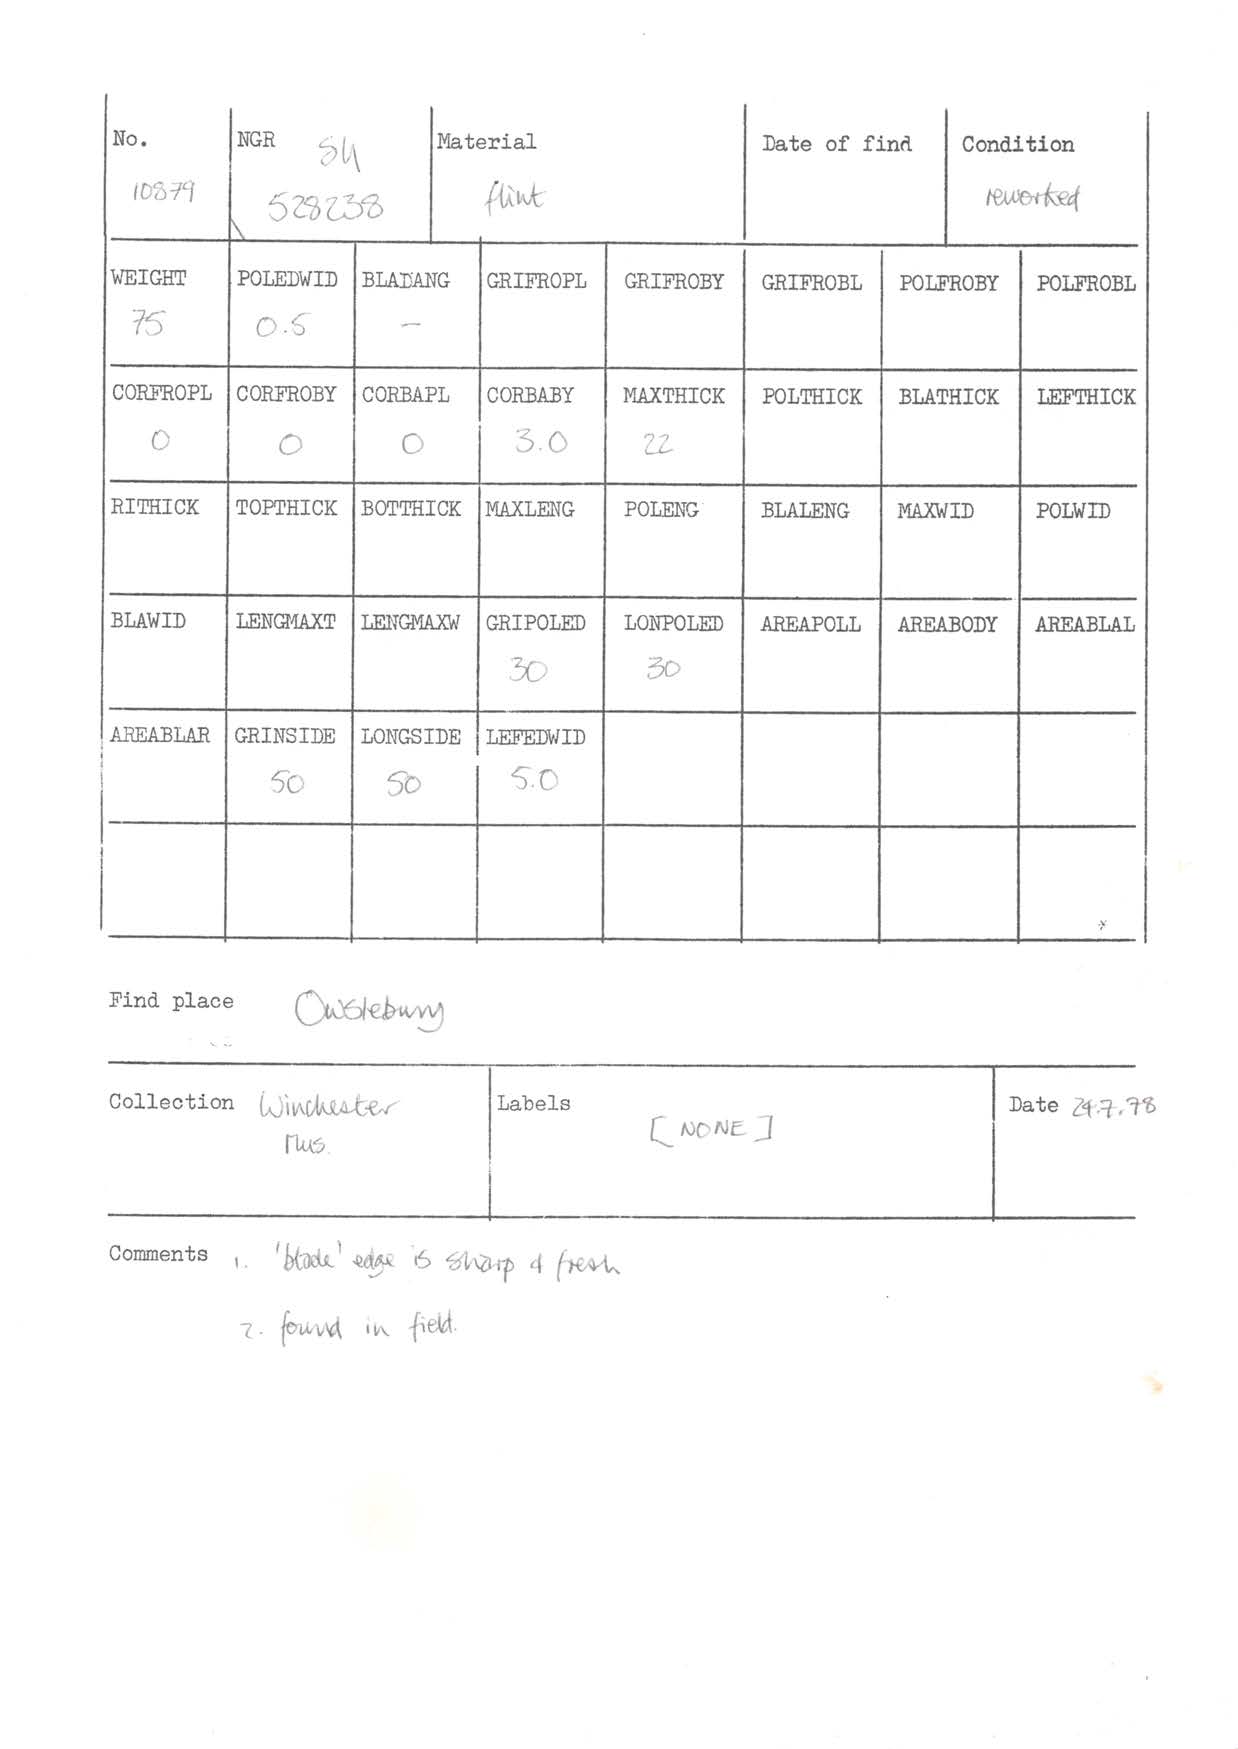 No. NGR SU Material Date of find Condition
10879 528238 flint reworked
WEIGHT POLEDWID BLADANG GRIFROPL GRIFROBY GRIFROBL POLFROBY POLFROBL
75 0.5 —
CORFROPL CORFROBY CORBAPL CORBABY MAXTHICK POLTHICK BLATHICK LEFTHICK
0 0 0 3.0 22
RITHICK TOPTHICK BOTTHICK MAXLENG POLENG BLALENG MAXWID POLWID
BLAWID LENGMAXT LENGMAXW GRIPOLED LONPOLED AREAPOLL AREABODY AREABLAL
30 30
AREABLAR GRINSIDE LONGSIDE LEFEDWID
50 50 5.0
Find place Owslebury
Collection Winchester Labels Date 24.7.78
Mus. [NONE]
Comments 1. 'blade' edge is sharp & fresh
2. found in field.